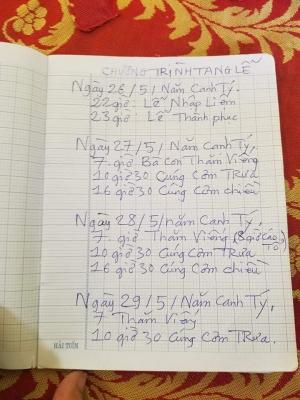 CHƯƠNG TRÌNH TANG LỄ
Ngày 26/5/ Năm Canh Tý.
22 giờ: Lễ Nhập Liệm
23 giờ: Lễ Thành phục
Ngày 27/5/ Năm Canh Tý,
7. giờ Bà con Thăm Viếng
10 giờ 30 Cúng Cơm Trưa
16 giờ 30 Cúng Cơm chiều
Ngày 28/5/ năm Canh Tý,
7. giờ Thăm Viếng (8 giờ Cáo Tổ)
10 giờ 30 Cúng Cơm Trưa
16 giờ 30 Cúng Cơm chiều
Ngày 29/5/ Năm Canh Tý,
7 Thăm Viếy
10 giờ 30 Cúng Cơm Trưa.
HẢI TIẾN